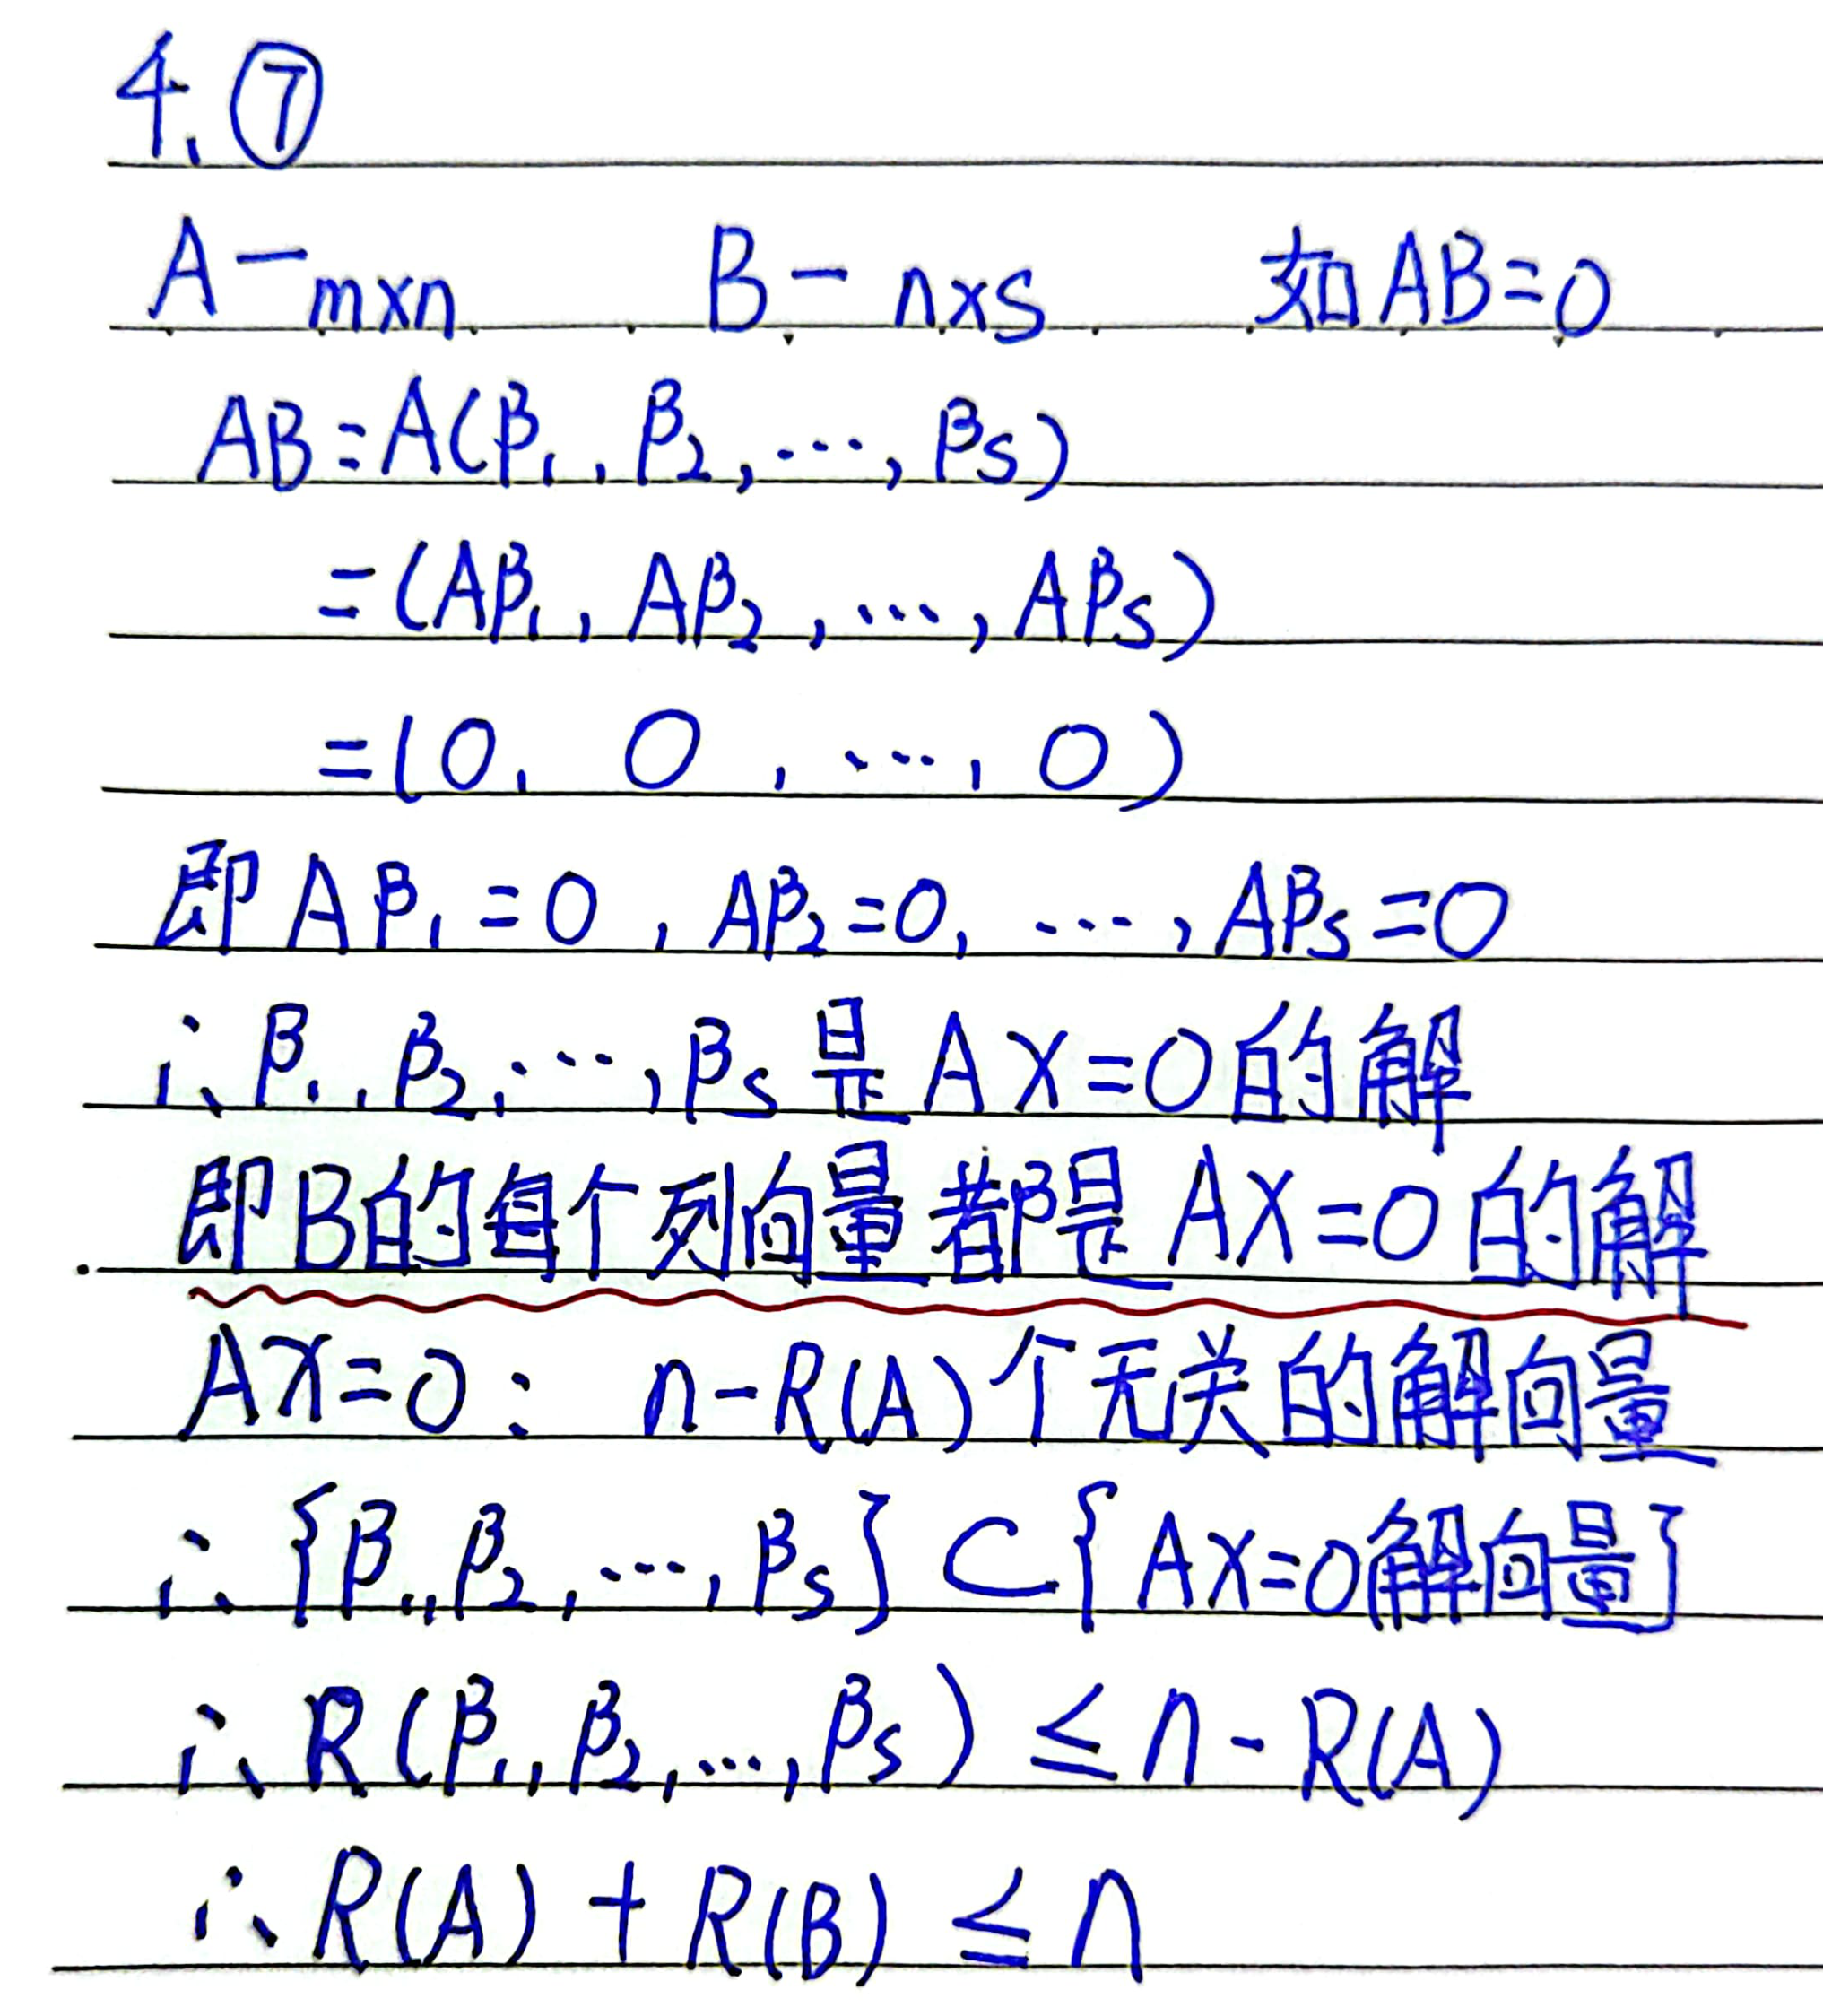 4、⑦
A — m×n B — n×s 如AB=0
AB=A(β₁, β₂, …, βs)
=(Aβ₁, Aβ₂, …, Aβs)
=(0, 0, …, 0)
即Aβ₁=0, Aβ₂=0, …, Aβs=0
∴β₁, β₂, …, βs是AX=0的解
即B的每个列向量都是AX=0的解
AX=0: n-R(A)个无关的解向量
∴{β₁, β₂, …, βs}⊂{AX=0解向量}
∴R(β₁, β₂, …, βs)≤n-R(A)
∴R(A)+R(B)≤n